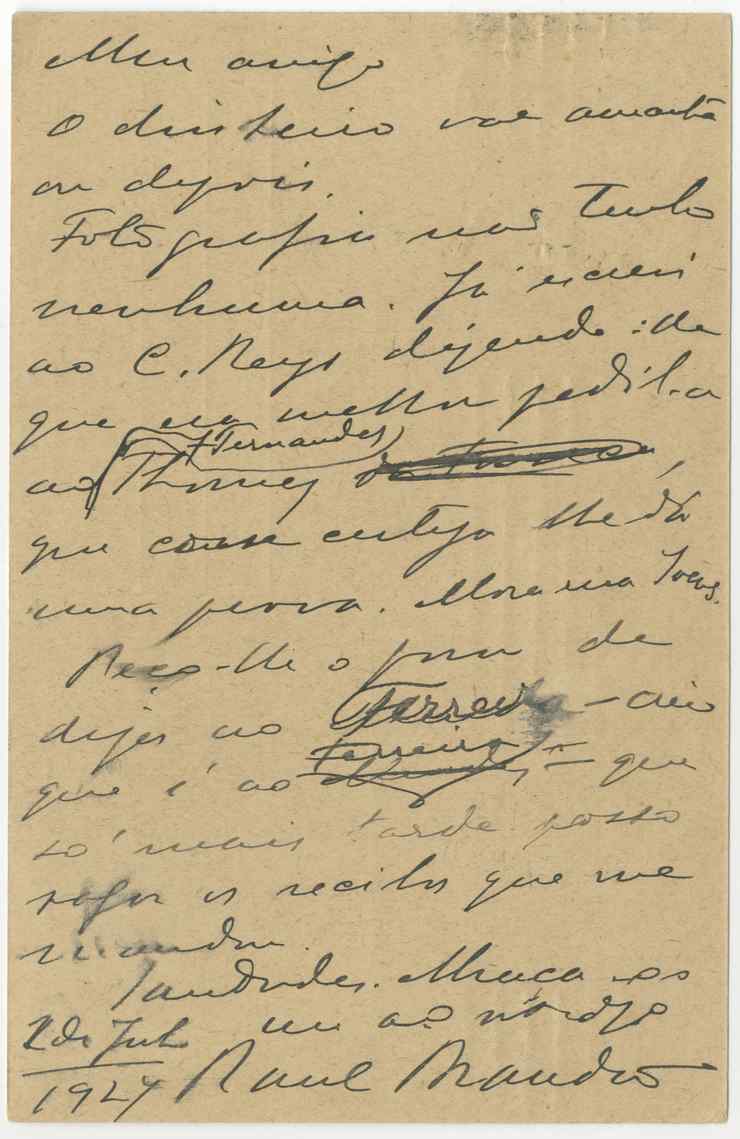 Meu amigo
O dinheiro vae amanhã
ou depois.
Fotografia não tenho
nenhuma. Já escrevi
ao C. Reys dizendo-lhe
que era melhor pedil-a
Fernandes
ao Thomaz
que com certeza lhe dá
uma prova. Mora na
Peço-lhe o favor de
dizer ao Ferreira - creio
que é ao Ferreira - que
só mais tarde posso
pagar os recibos que me
mandou.
Saudades. Abraça-os
um ao outro
2 de Jul
1924 Raul Brandão